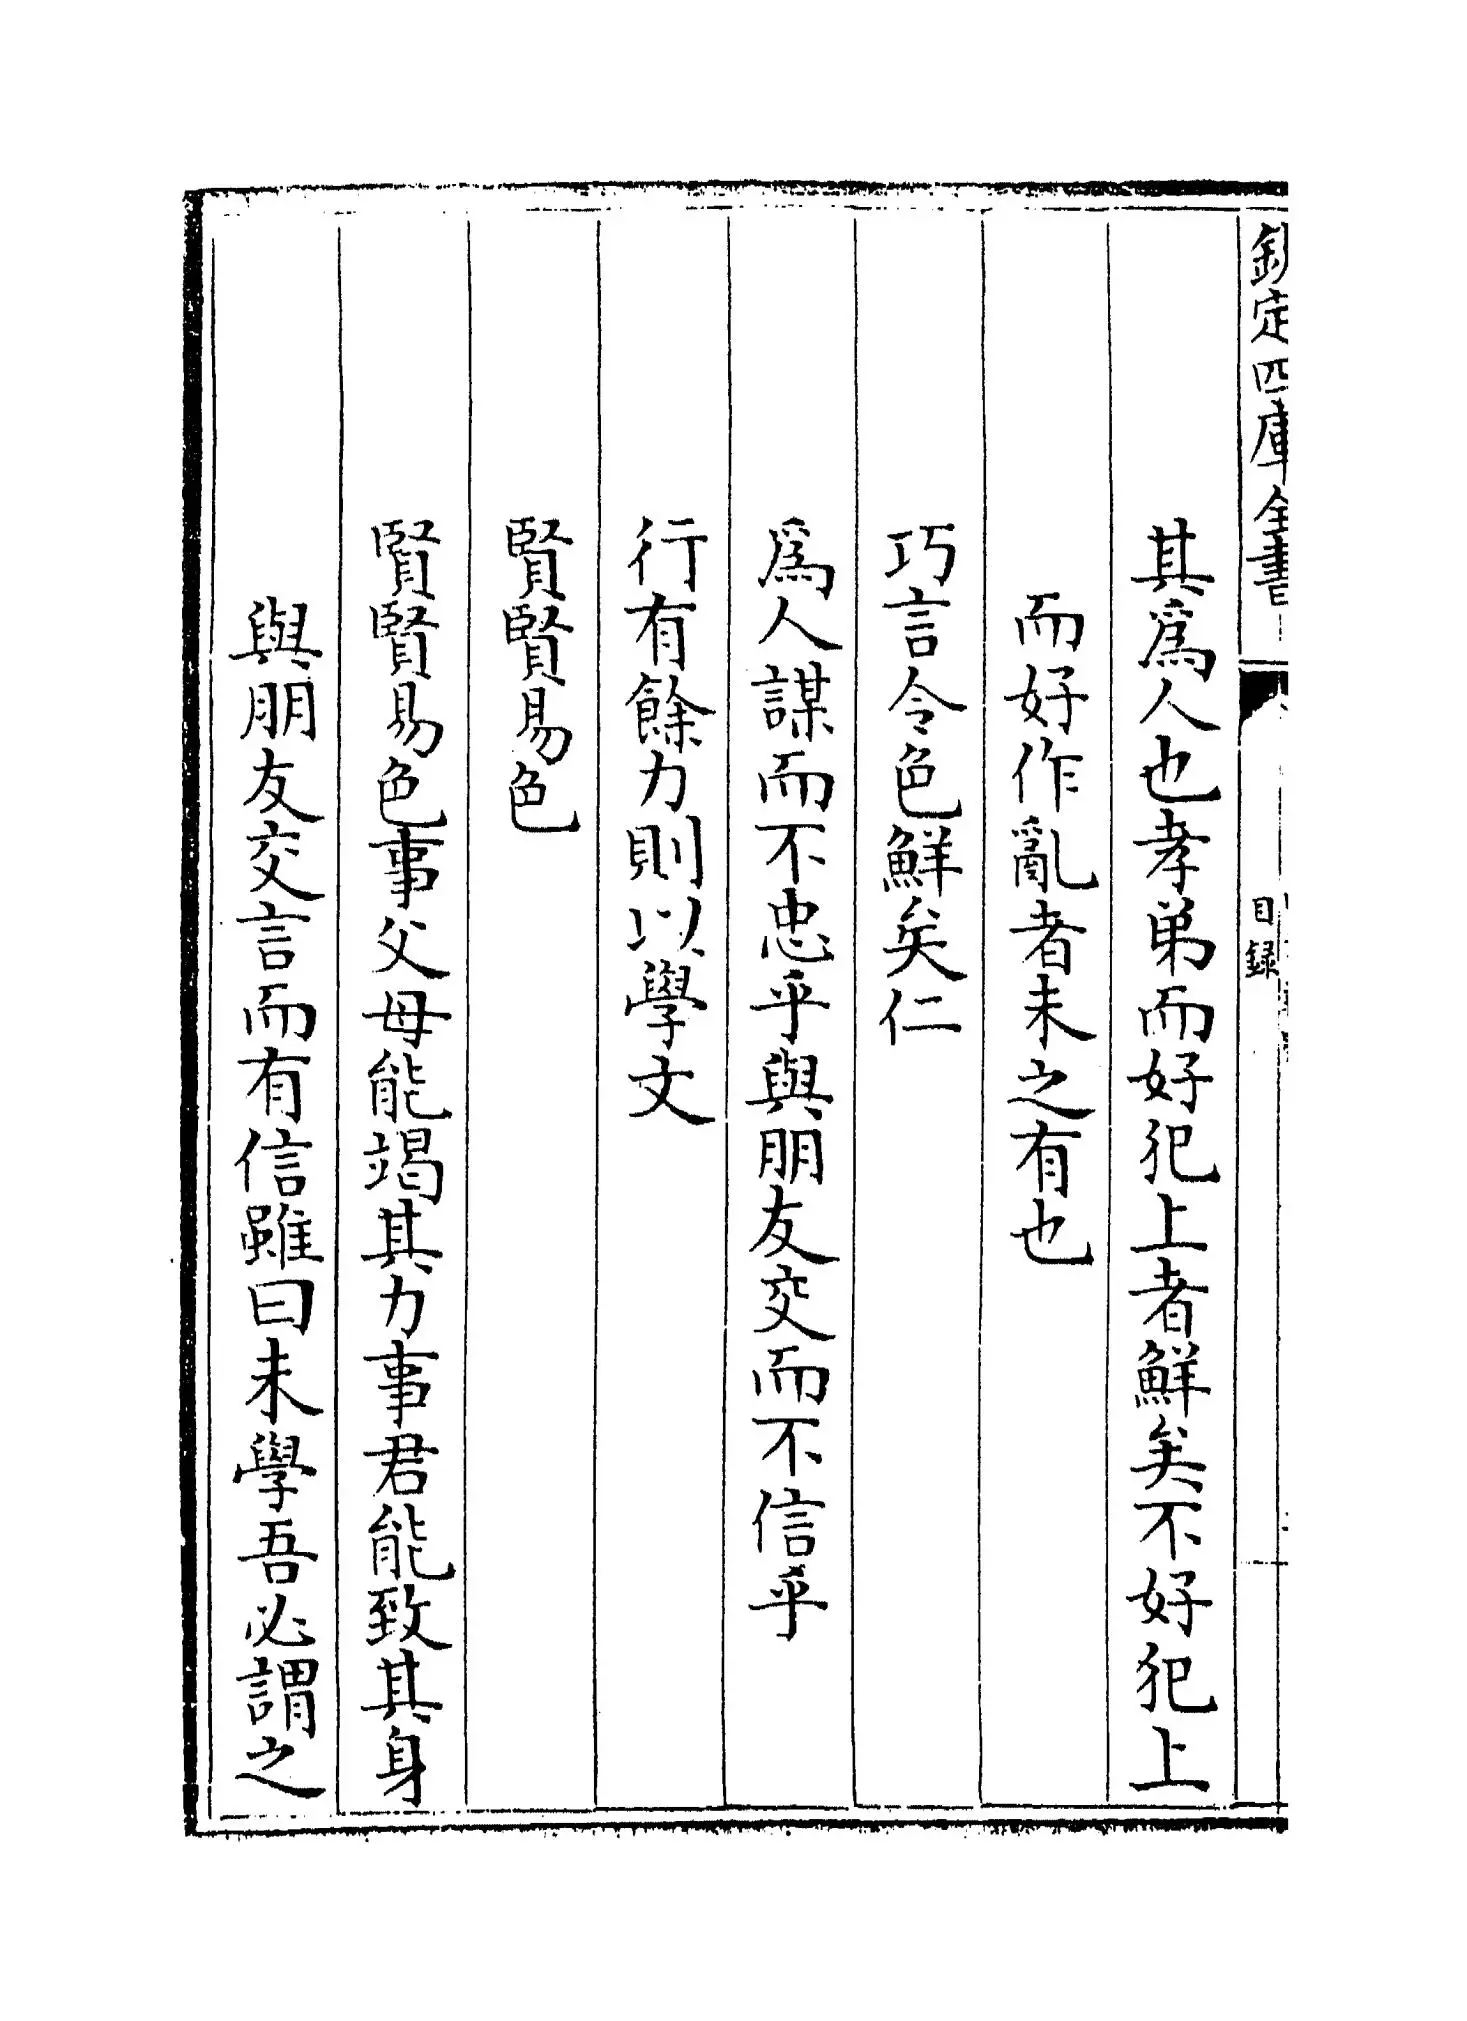 欽定四庫全書
目録
其爲人也孝弟而好犯上者鮮矣不好犯上
而好作亂者未之有也
巧言令色鮮矣仁
爲人謀而不忠乎與朋友交而不信乎
行有餘力則以學文
賢賢易色
賢賢易色事父母能竭其力事君能致其身
與朋友交言而有信雖曰未學吾必謂之